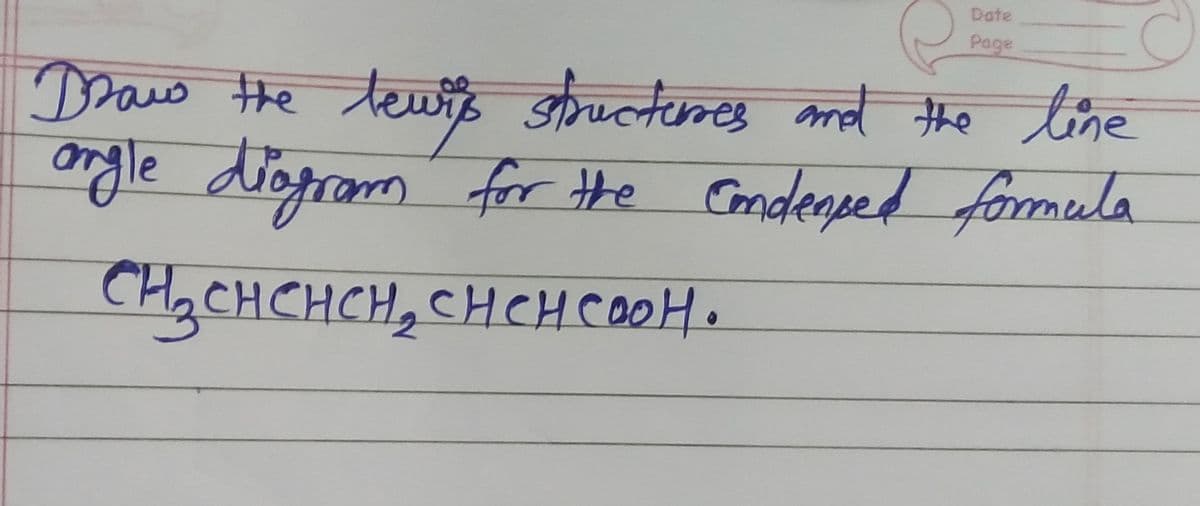 Date
Page
Draw the lewis structures and the line
angle diagram for the Condensed formula
CH₃CHCHCH₂CHCHCOOH.